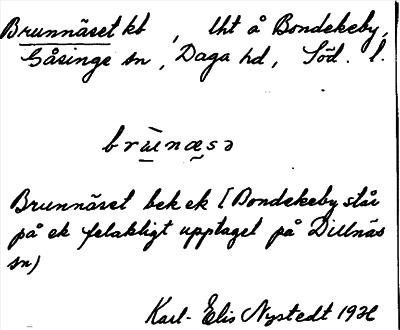 Brunnäset kt, lht å Bondekeby,
Gåsinge sn, Daga hd, Söd. l.
brùnæsə
Brunnäset bek ek [Bondekeby står
på ek felaktigt upptaget på Dillnäs
sn)
Karl-Elis Nystedt